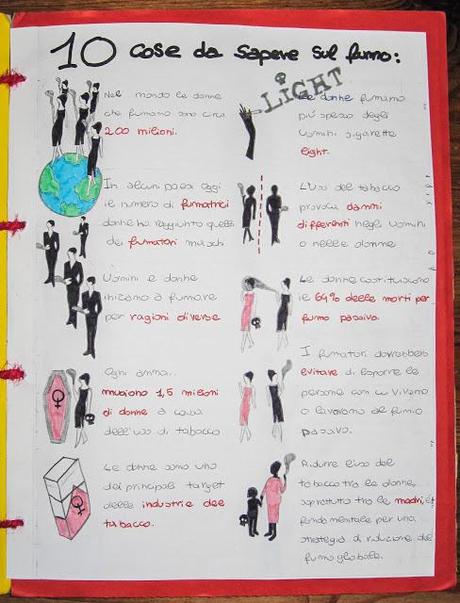 10 cose da sapere sul fumo:
Nel mondo le donne
che fumano sono circa
200 milioni.
In alcuni paesi oggi
il numero di fumatrici
donne ha raggiunto quello
dei fumatori maschi
Uomini e donne
iniziano a fumare
per ragioni diverse
Ogni anno...
muoiono 1,5 milioni
di donne a causa
dell'uso di tabacco
Le donne sono uno
dei principali target
delle industrie del
tabacco.
LIGHT
Le donne fumano
più spesso degli
uomini sigarette
light.
L'uso del tabacco
provoca danni
differenti negli uomini
o nelle donne
Le donne costituiscono
il 64% delle morti per
fumo passivo.
I fumatori dovrebbero
evitare di esporre le
persone con cui vivono
o lavorano al fumo
passivo.
Ridurre l'uso del
tabacco tra le donne,
soprattutto tra le madri, è
fondamentale per una
strategia di riduzione del
fumo globale.